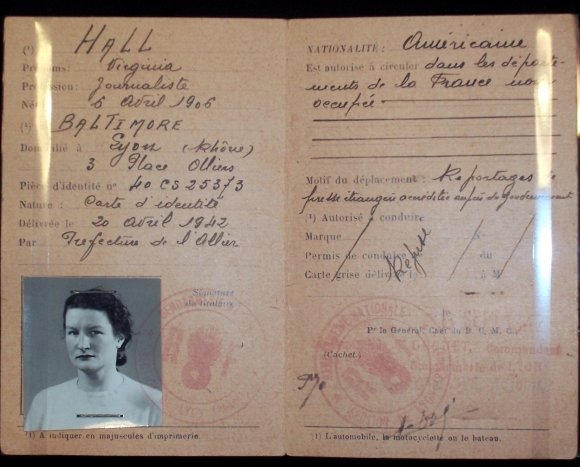 (1) HALL
Prénoms: Virginia
Profession: Journaliste
Né 6 Avril 1906
(1) BALTIMORE
Domicilié à Lyon (Rhône)
3 Place Olliers
Pièce d'identité n° 40 CS 25373
Nature: Carte d'identité
Délivrée le 20 avril 1942
Par Prefecture de l'Allier
Signature
du titulaire
(1) A indiquer en majuscules d'imprimerie.
NATIONALITÉ: Américaine
Est autorisé à circuler dans les départe-
ments de la France non
occupée
Motif du déplacement: Reportages de
presse étrangère accréditée auprès du gouvernement
(1) Autorisé à conduire
Marque N°
Permis de conduire du
Carte grise délivrée à M
Refusé
Pr le Général, Chef du D. G. M. C.,
(Cachet.)
P/o
(1) L'automobile, la motocyclette ou le bateau.